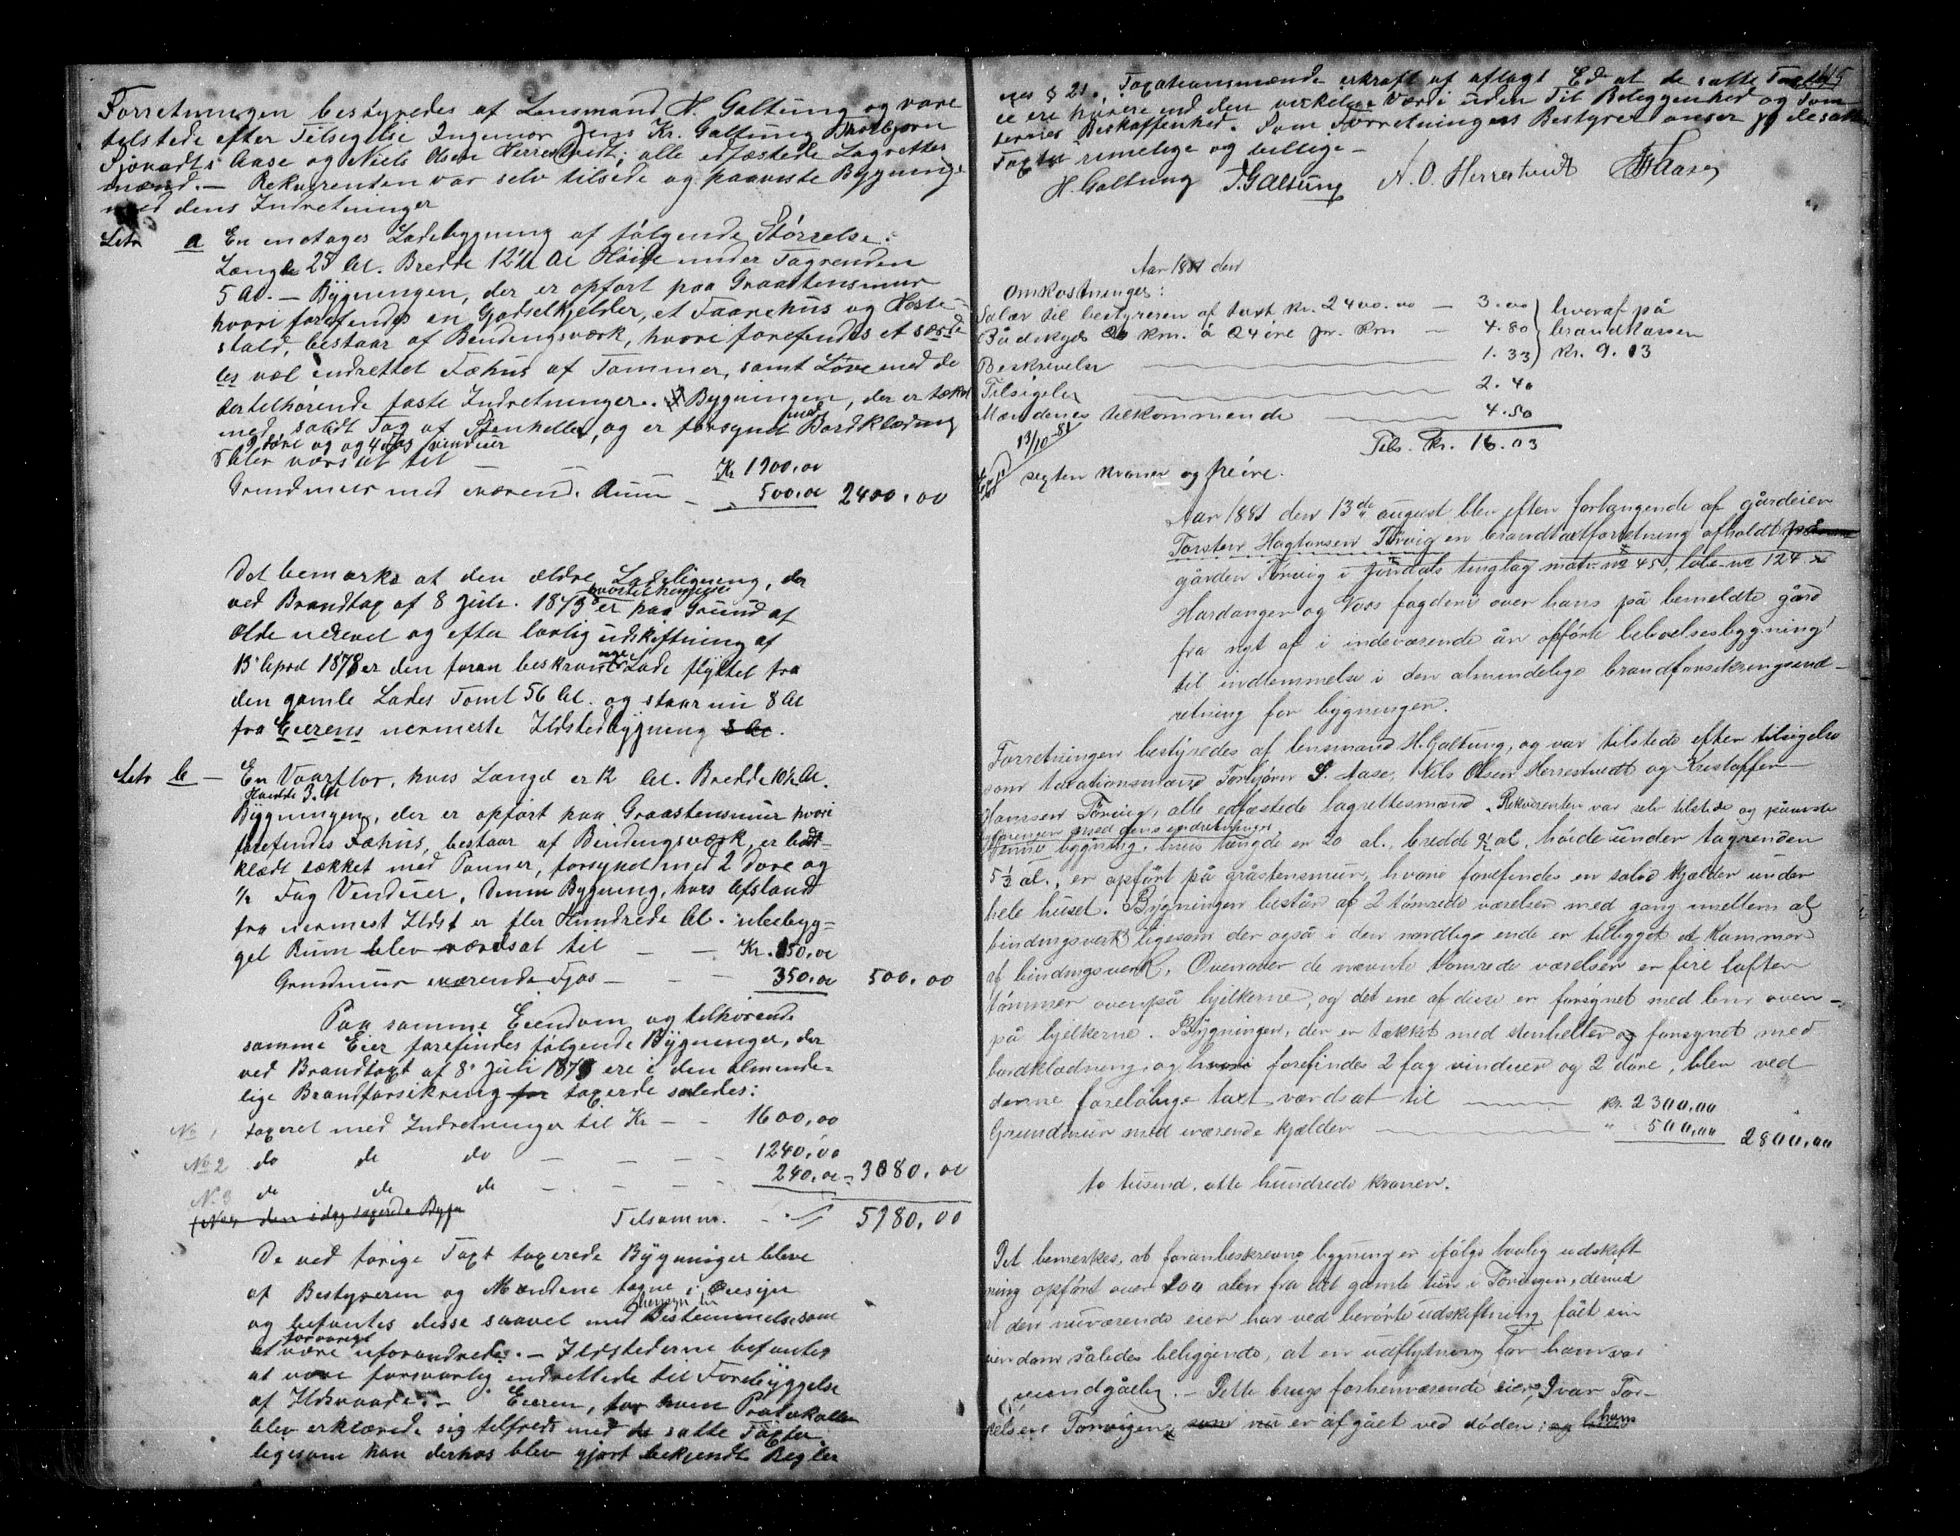 Forretningen bestyredes af Lensmand H. Galtung og vare
tilstede efter Tilsigelse Ingeniør Jens Kr. Galtung Thorbjørn
Sjovadts Aase og Niels Olsen Herrestvedt, alle edfæstede Lagrettes
mænd. — Rekvirenten var selv tilstede og paaviste Bygninge
med dens Indretninger
Litr a En enetages Ladebygning af følgende Størrelse:
Længde 25 Al. Bredde 12 ½ Al Høide under Tagrenden
5 Al. — Bygningen, der er opført paa Graastensmur
hvori forefindes en Gjødselkjelder, et Faarehus og Heste-
stald, bestaar af Bendingsværk, hvori forefindes et særde
les vel indrettet Fæhus af Tømmer, samt Løve med de
dertilhørende faste Indretninger. Bygningen, der er tækket
med solidt Tag af Stenheller, og er forsynet med Bordklædning
9 døre og og 4 Fag vinduer
blev værdsat til — — Kr 1900,00
Grundmur med værende Rum — 500,00 2400,00
Det bemærkes at den ældre Ladebygning, der
ved Brandtax af 8 Juli 1873 er paa Grund af
Ælde nedrevet og efter lovlig udskiftning af
15 April 1878 er den foran beskrevne nye Lade flyttet fra
den gamle Lades Tomt 56 Al. og staar nu 8 Al
fra Eierens nermeste Ildstedbygning 8 Al.
Litr b — En Vaarflor, hvis Længd er 12 Al. Bredde 10½ Al.
Høidde 3 Al
Bygningen, der er opført paa Graastensmur hvori
forefindes Fæhus, bestaar af Bindingsværk, er bord-
klædt tækket med Panner, forsynet med 2 Døre og
½ Fag Vinduer, Denne Bygning, hvis Afstand
fra nermest Ildst er fler Hundrede Al. ubebyg-
get Rum blev værdsat til — — Kr. 150,00
Grundmur værende Fjøs — — 350,00 500,00
Paa samme Eiendom og tilhørende
samme Eier forefindes følgende Bygninger, der
ved Brandtaxt af 8 Juli 1873 ere i den almende-
lige Brandforsikring for taxerde saledes:
No 1 taxeret med Indretninger til Kr — — 1600,00
No 2 do de do — — — — 1240,00
No 3 de de de — — — — 240,00 = 3080,00
den idag taxerede Bygn Tilsamm. — 5980,00
De ved forige Taxt taxerede Bygninger bleve
af Bestyreren og Mændene tagne i Øiesyn
og befantes disse saavel med Hensyn til Bestemmelse som
forøvrigt
at være uforandrede. — Ildstederne befantes
at være forsvarlig indrettede til Forebyggelse
af Ildsvaade. — Eieren, for hvem Protokollen
blev erklærede sig tilfreds med de satte Taxter
ligesom han derhos blev gjort bekjendt Regler
nes § 21. Taxationsmændene erkraft af aflagt Ed at de satte Taxter 115
ei ere høiere end den virkelige Værdi uden Til Beliggenhed og Tom
ternes Beskaffenhed. Som Forretningens Bestyrer anser jeg de satte
Taxter rimelige og billige —
H. Galtung J. Galtung N. O. Herrestvedt Aase
Aar 1881 den
Omkostninger:
Salær til bestyreren af taxt kr. 2400.00 — 3.00 hveraf på
Bådskyds 20 km. à 24 øre pr. km — 4.80 brandkassen
Beskrivelse — 1.33 kr. 9.13
Tilsigelse — 2.40
Mændenes tilkommende — 4.50
13/10-81 Tils. Kr. 16.03
segten kroner og tre øre.
Aar 1881 den 13de august blev efter forlangende af gårdeier
Torsten Hagtorsen Tørvig en brandtaxtforretning afholdt på
gården Tørvig i Jondals tinglag matr. no 45, løbe no 124
Hardanger og Vos fogderi over hans på bemeldte gård
fra nyt af i indeværende år opførte bebovelsesbygning
til indlemmelse i den almindelige brandforsikringsind-
retning for bygninger.
Forretningen bestyredes af lensmand H. Galtung, og var tilstede efter tilsigelse
som taxationsmænd Torbjørn S. Aase, Nils Olsen Herrestvedt og Kristoffer
Hansen Tørvig, alle edfæstede lagrettesmænd. Rekvirenten var selv tilstede og påviste
med dens indretninger.
Denne bygning, hvis længde er 20 al., bredde 9½ al, høide under tagrenden
5½ al., er opført på gråstensmur, hvori forefindes en solid kjælder under
hele huset. Bygningen består af 2 tømrede værelser med gang imellem af
bindingsverk ligesom der også i den nordlige ende er tilbygget et kammer
af bindingsverk. Ovenover de nævnte tømrede værelser er fire lofter
tømmer ovenpå bjelkerne, og det ene af disse er forsynet med brur oven-
på bjelkerne. Bygningen, der er tækket med stenheller og forsynet med
bordklædning, og hvori forefindes 2 fag vinduer og 2 døre, blev ved
denne foreløbige taxt værdsat til — kr. 2300,00
Grundmur med værende kjelder — " 500,00 2800,00
to tusend, otte hundrede kroner.
Det bemerkes, at foranbeskrevne bygning er ifølge lovlig udskift-
ning opført over 200 alen fra det gamle tun i Tørvigen, derved
at den nuværende eier har ved berørte udskiftning fået sin
eiendom således beliggende, at en udflytning for ham var
uundgåelig. — Dette brugs forhenværende eier, Ivar Tor-
kelsen Tørvigen som nu er afgået ved døden; og ham